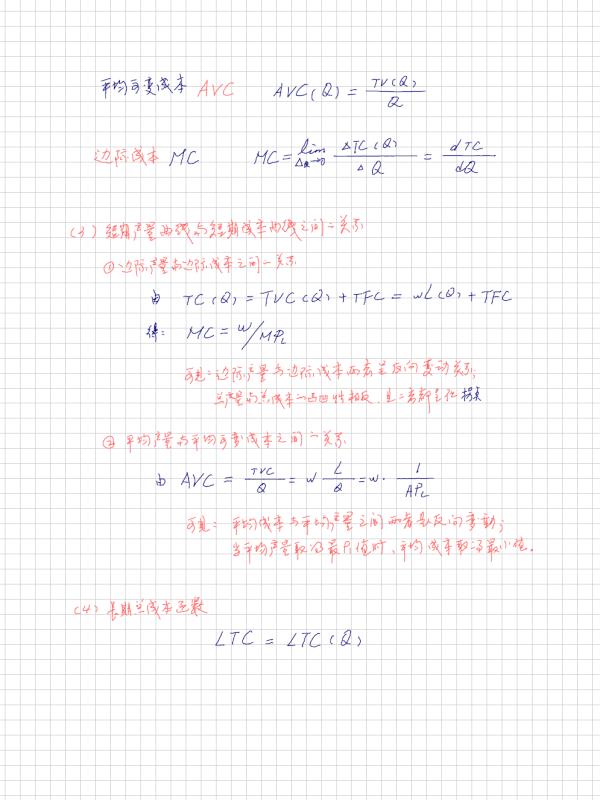 平均可变成本 AVC AVC(Q) = TV(Q)/Q
边际成本 MC MC = lim ΔQ→0 ΔTC(Q)/ΔQ = dTC/dQ
(3) 短期产量曲线与短期成本曲线之间的关系
① 边际产量与边际成本之间的关系
由 TC(Q) = TVC(Q) + TFC = wL(Q) + TFC
得: MC = w/MPL
可见: 边际产量与边际成本两者呈反向变动关系;
总产量与总成本的凸凹性相反, 且二者都是 拐点
② 平均产量与平均可变成本之间的关系
由 AVC = TVC/Q = w L/Q = w · 1/APL
可见: 平均成本与平均产量之间两者是反向变动;
当平均产量取得最大值时, 平均成本取得最小值.
(4) 长期总成本函数
LTC = LTC(Q)